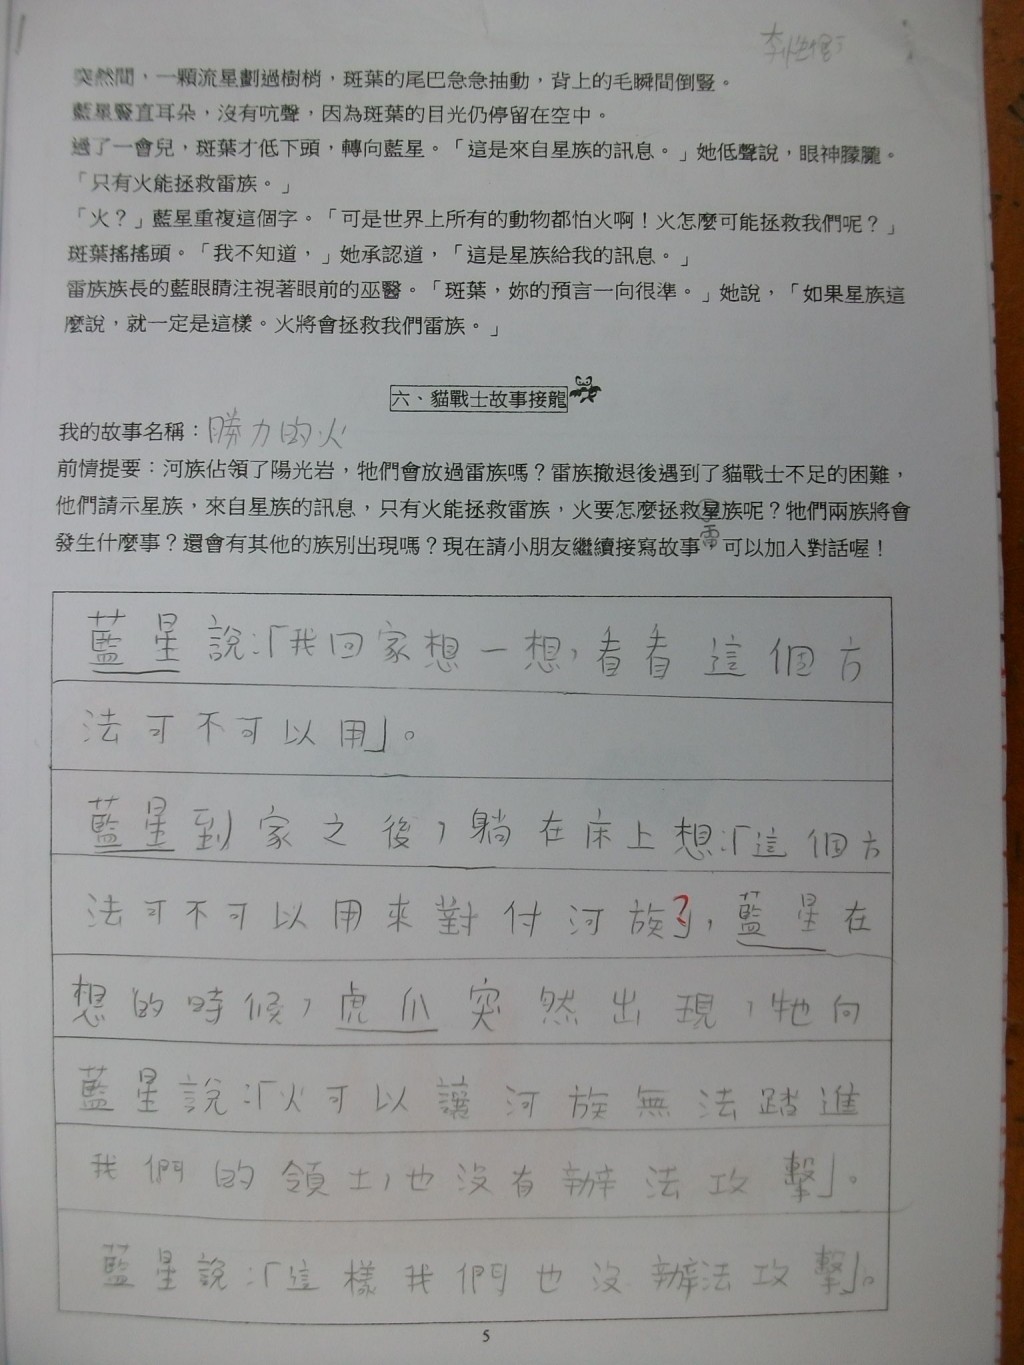 突然間，一顆流星劃過樹梢，斑葉的尾巴急急抽動，背上的毛瞬間倒豎。
藍星豎直耳朵，沒有吭聲，因為斑葉的目光仍停留在空中。
過了一會兒，斑葉才低下頭，轉向藍星。「這是來自星族的訊息。」她低聲說，眼神朦朧。
「只有火能拯救雷族。」
「火？」藍星重複這個字。「可是世界上所有的動物都怕火啊！火怎麼可能拯救我們呢？」
斑葉搖搖頭。「我不知道，」她承認道，「這是星族給我的訊息。」
雷族族長的藍眼睛注視著眼前的巫醫。「斑葉，妳的預言一向很準。」她說，「如果星族這
麼說，就一定是這樣。火將會拯救我們雷族。」
六、貓戰士故事接龍
我的故事名稱：勝力的火
前情提要：河族佔領了陽光岩，牠們會放過雷族嗎？雷族撤退後遇到了貓戰士不足的困難，
他們請示星族，來自星族的訊息，只有火能拯救雷族，火要怎麼拯救星族呢？牠們兩族將會
雷
發生什麼事？還會有其他的族別出現嗎？現在請小朋友繼續接寫故事，可以加入對話喔！
藍星說：「我回家想一想，看看這個方
法可不可以用」。
藍星到家之後，躺在床上想：「這個方
法可不可以用來對付河族？」，藍星在
想的時候，虎爪突然出現，牠向
藍星說：「火可以讓河族無法踏進
我們的領土，也沒有辦法攻擊」。
藍星說：「這樣我們也沒辦法攻擊」。
5